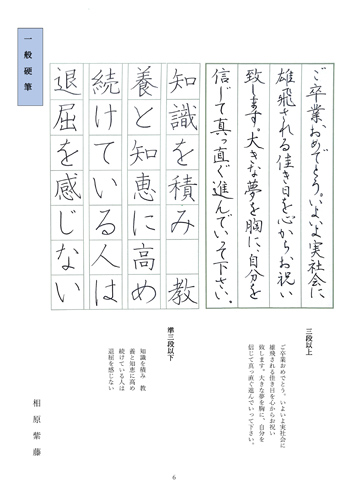 一般硬筆
ご卒業おめでとう。いよいよ実社会に
雄飛される佳き日を心からお祝い
致します。大きな夢を胸に、自分を
信じて真っ直ぐ進んでいって下さい。
知識を積み 教
養と知恵に高め
続けている人は
退屈を感じない
三段以上
ご卒業おめでとう。いよいよ実社会に
雄飛される佳き日を心からお祝い
致します。大きな夢を胸に、自分を
信じて真っ直ぐ進んでいって下さい。
準三段以下
知識を積み 教
養と知恵に高め
続けている人は
退屈を感じない
相原紫藤
6